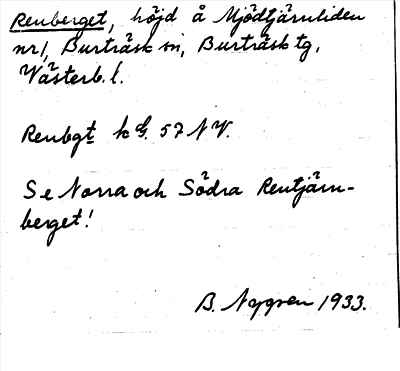 Renberget, höjd å Mjödtjärnliden
nr 1, Burträsk sn, Burträsk tg,
Västerb. l.
Renbgt k G. 57 NV.
Se Norra och Södra Rentjärn-
berget!
B. Nygren 1933.